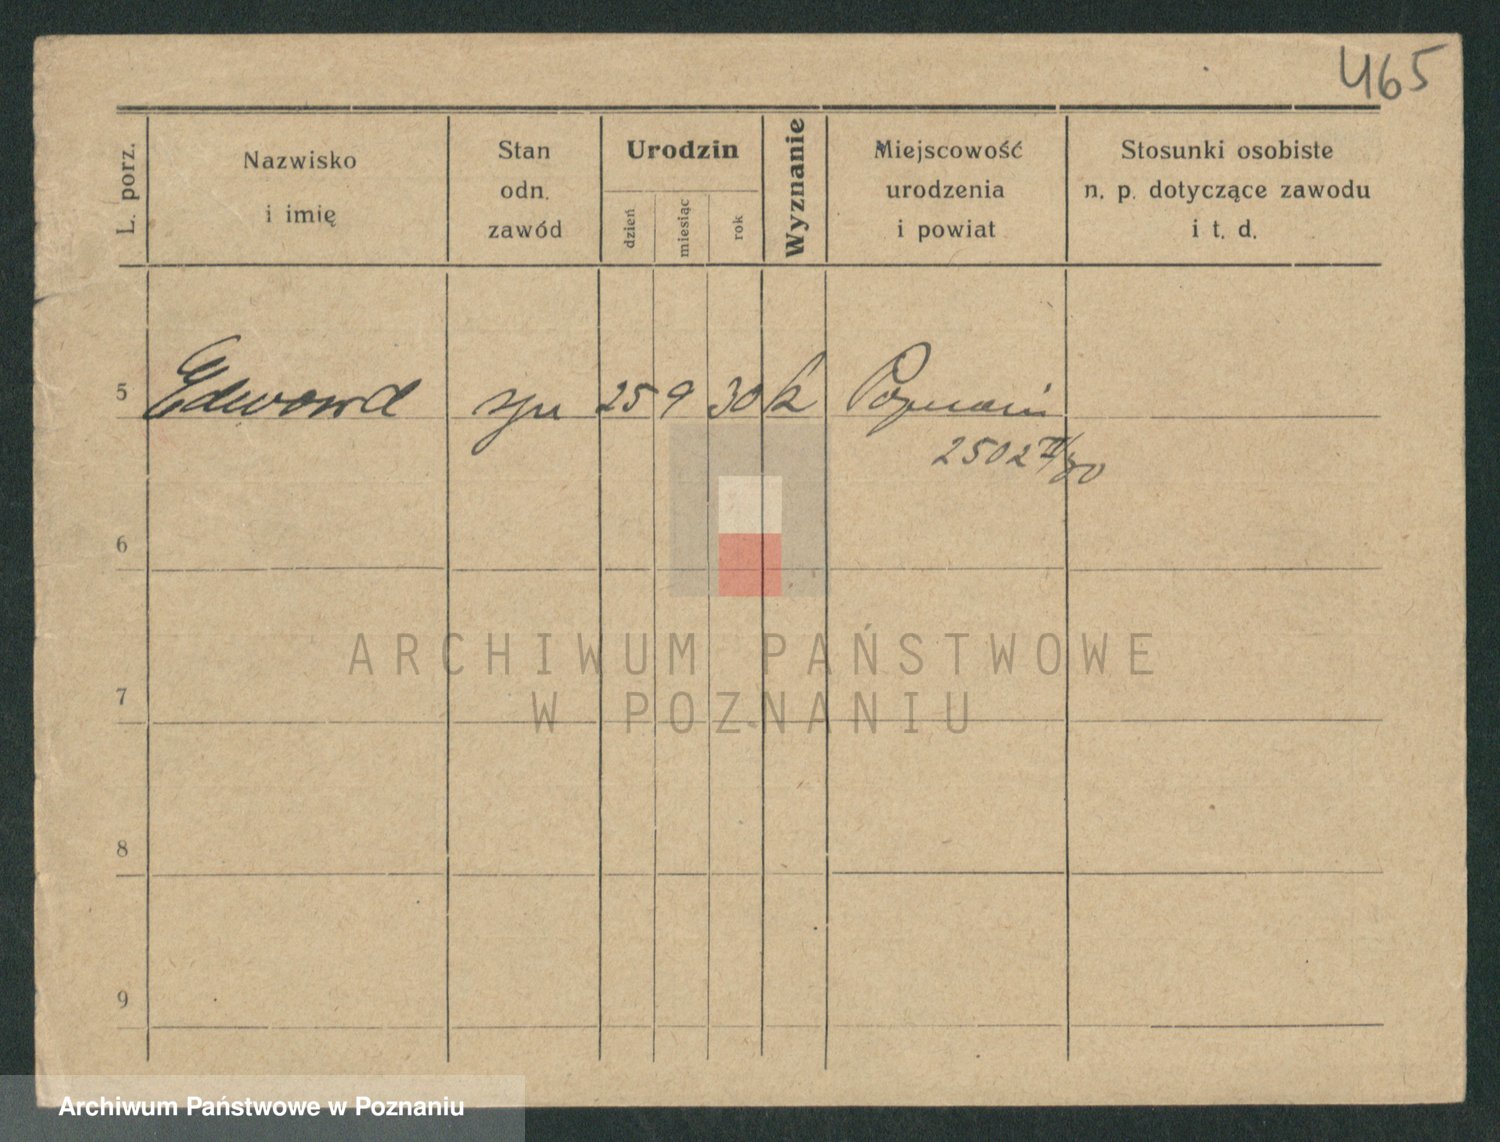 465
L. porz.
Nazwisko
i imię
Stan
odn.
zawód
Urodzin
dzień
miesiąc
rok
Wyznanie
Miejscowość
urodzenia
i powiat
Stosunki osobiste
n. p. dotyczące zawodu
i t. d.
5 Edward syn 25 9 30 k Poznań
2502 II/30
6
ARCHIWUM PAŃSTWOWE
W POZNANIU
7
8
9
Archiwum Państwowe w Poznaniu